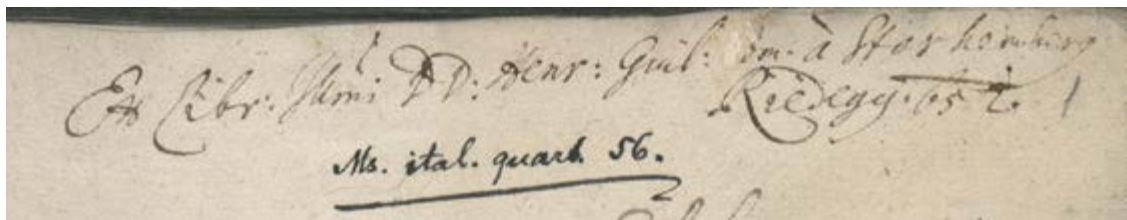 Ex Libr: Illmi DD: Henr: Guil: Com: à Starhemberg
Riedegg. 65 2.
Ms. ital. quart. 56.